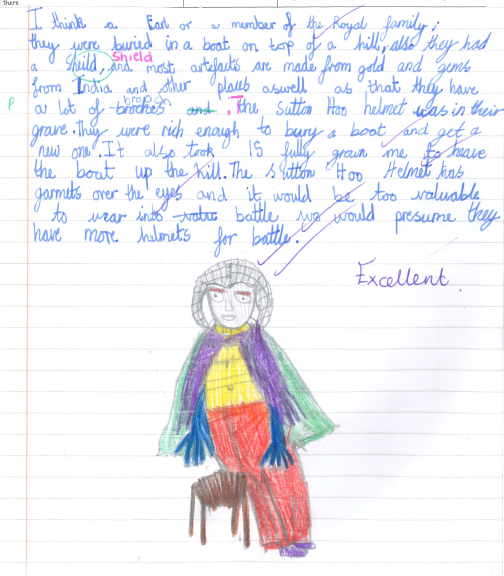 I think a Earl or a number of the Royal family;
they were buried in a boat on top of a hill, also they had
Shield
a sheild, and most artefacts are made from gold and gems
from India and other places aswell as that they have
P
a lot of broches and . The Sutton Hoo helmet was in their
grave. They were rich enough to bury a boat and get a
new one. It also took 15 fully grown me to heave
the boat up the hill. The Sutton Hoo Helmet has
garnets over the eyes and it would be too valuable
to wear into battle we would presume they
have more helmets for battle.
Excellent.